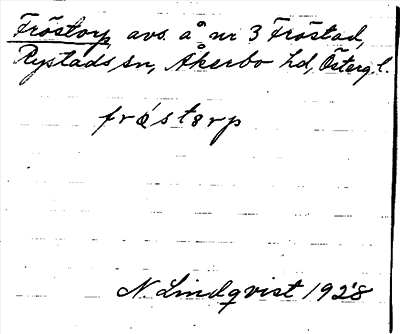 Fröstorp, avs. å nr 3 Fröstad,
Rystads sn, Åkerbo hd, Österg. l.
frǿstorp
N. Lindqvist 1928